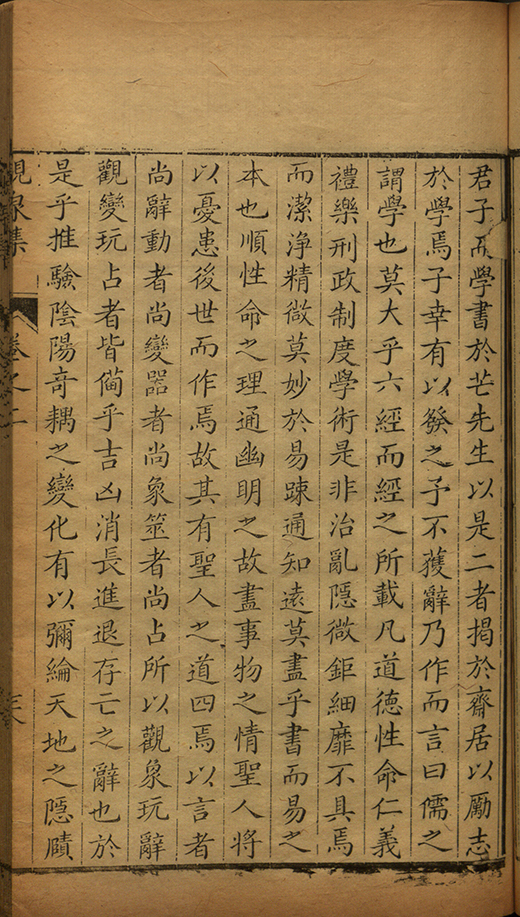 君子而學書於芒先生以是二者揭於齋居以厲志
於學焉子幸有以發之予不獲辭乃作而言曰儒之
謂學也莫大乎六經而經之所載凡道德性命仁義
禮樂刑政制度學術是非治亂隱微鉅細靡不具焉
而潔淨精微莫妙於易踈通知遠莫盡乎書而易之
本也順性命之理通幽明之故盡事物之情聖人將
以憂患後世而作焉故其有聖人之道四焉以言者
尚辭動者尚變噐者尚象筮者尚占所以觀象玩辭
觀變玩占者皆俻乎吉凶消長進退存亡之辭也於
是乎推驗陰陽竒耦之變化有以彌綸天地之隱賾
集 卷之二